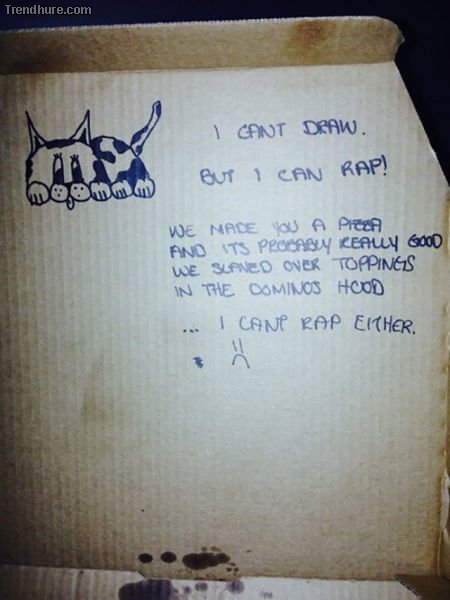 Trendhure.com
I CANT DRAW.
BUT I CAN RAP!
WE MADE YOU A PIZZA
AND ITS PROBABLY REALLY GOOD
WE SLAVED OVER TOPPINGS
IN THE DOMINOS HOOD
... I CANT RAP EITHER.